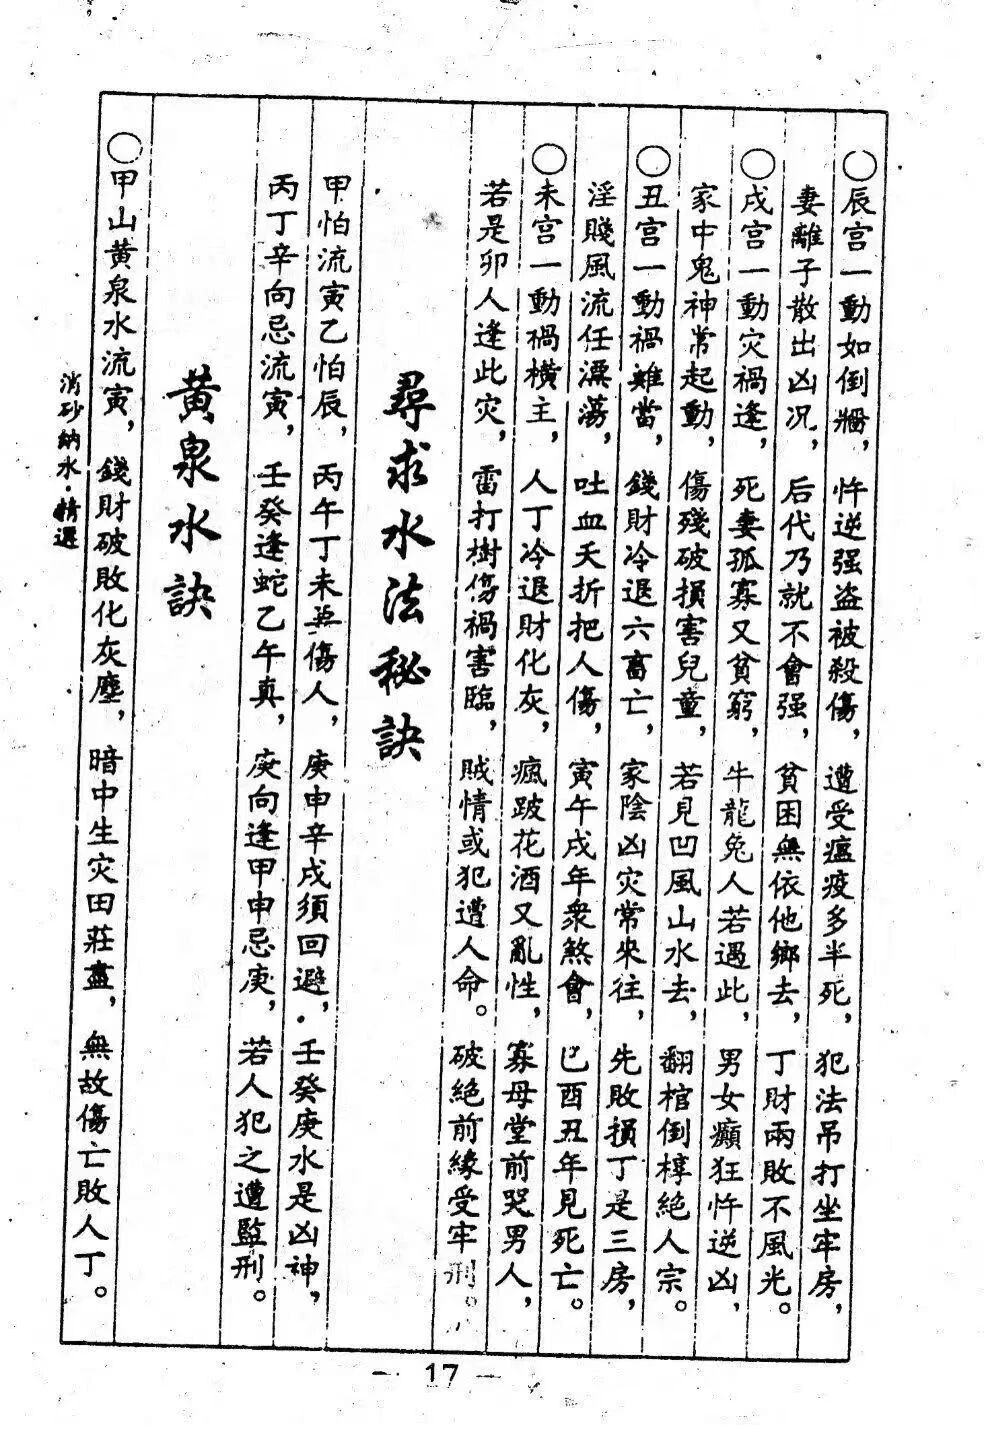 ○辰宫一動如倒牆，忤逆强盜被殺傷，遭受瘟疫多半死，犯法吊打坐牢房，
妻離子散出凶况，后代乃就不會强，貧困無依他鄉去，丁財兩敗不風光。
○戌宫一動灾禍逢，死妻孤寡又貧窮，牛龍兔人若遇此，男女癲狂忤逆凶，
家中鬼神常起動，傷殘破損害兒童，若見凹風山水去，翻棺倒椁絶人宗。
○丑宫一動禍難當，錢財冷退六畜亡，家陰凶灾常來往，先敗損丁是三房，
淫賤風流任漂蕩，吐血夭折把人傷，寅午戌年衆煞會，巳酉丑年見死亡。
○未宫一動禍横主，人丁冷退財化灰，瘋跛花酒又亂性，寡母堂前哭男人，
若是卯人逢此灾，雷打樹傷禍害臨，賊情或犯遭人命。破絶前緣受牢刑。
尋求水法秘訣
甲怕流寅乙怕辰，丙午丁未無傷人，庚申辛戌須回避，壬癸庚水是凶神，
丙丁辛向忌流寅，壬癸逢蛇乙午真，庚向逢甲申忌庚，若人犯之遭監刑。
黄泉水訣
○甲山黄泉水流寅，錢財破敗化灰塵，暗中生灾田莊盡，無故傷亡敗人丁。
消砂納水·精選
— 17 —